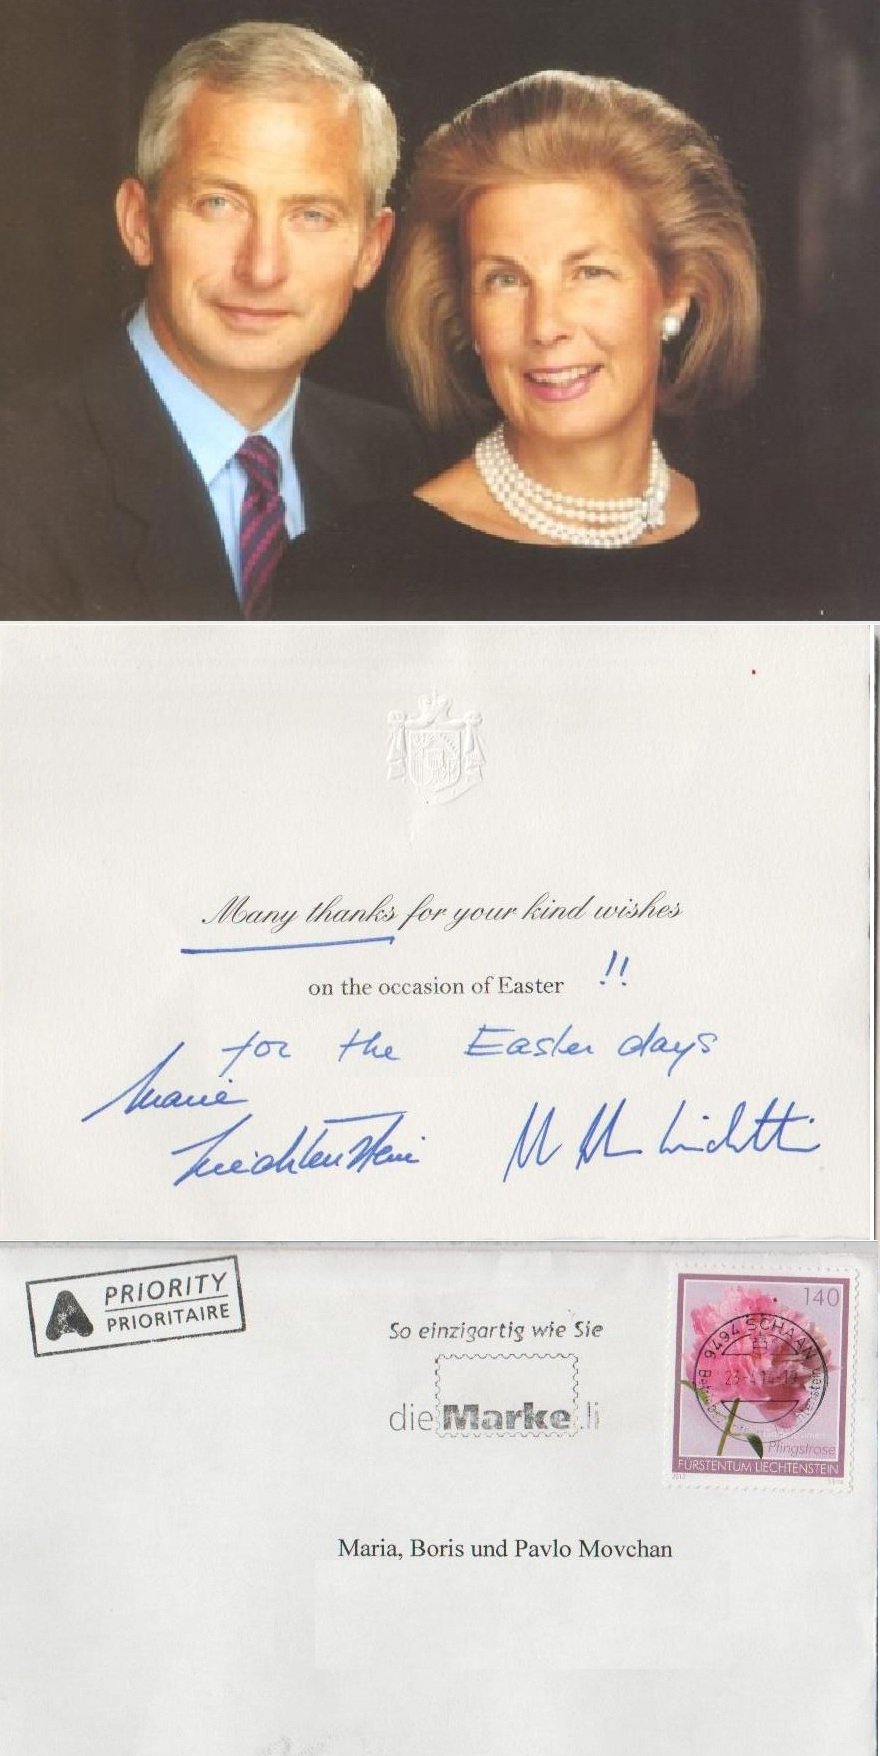 Many thanks for your kind wishes
on the occasion of Easter !!
for the Easter days
Marie
Liechtenstein
A PRIORITY
PRIORITAIRE
So einzigartig wie Sie
dieMarke.li
140
9494 SCHAAN
Pfingstrose
FÜRSTENTUM LIECHTENSTEIN
Maria, Boris und Pavlo Movchan